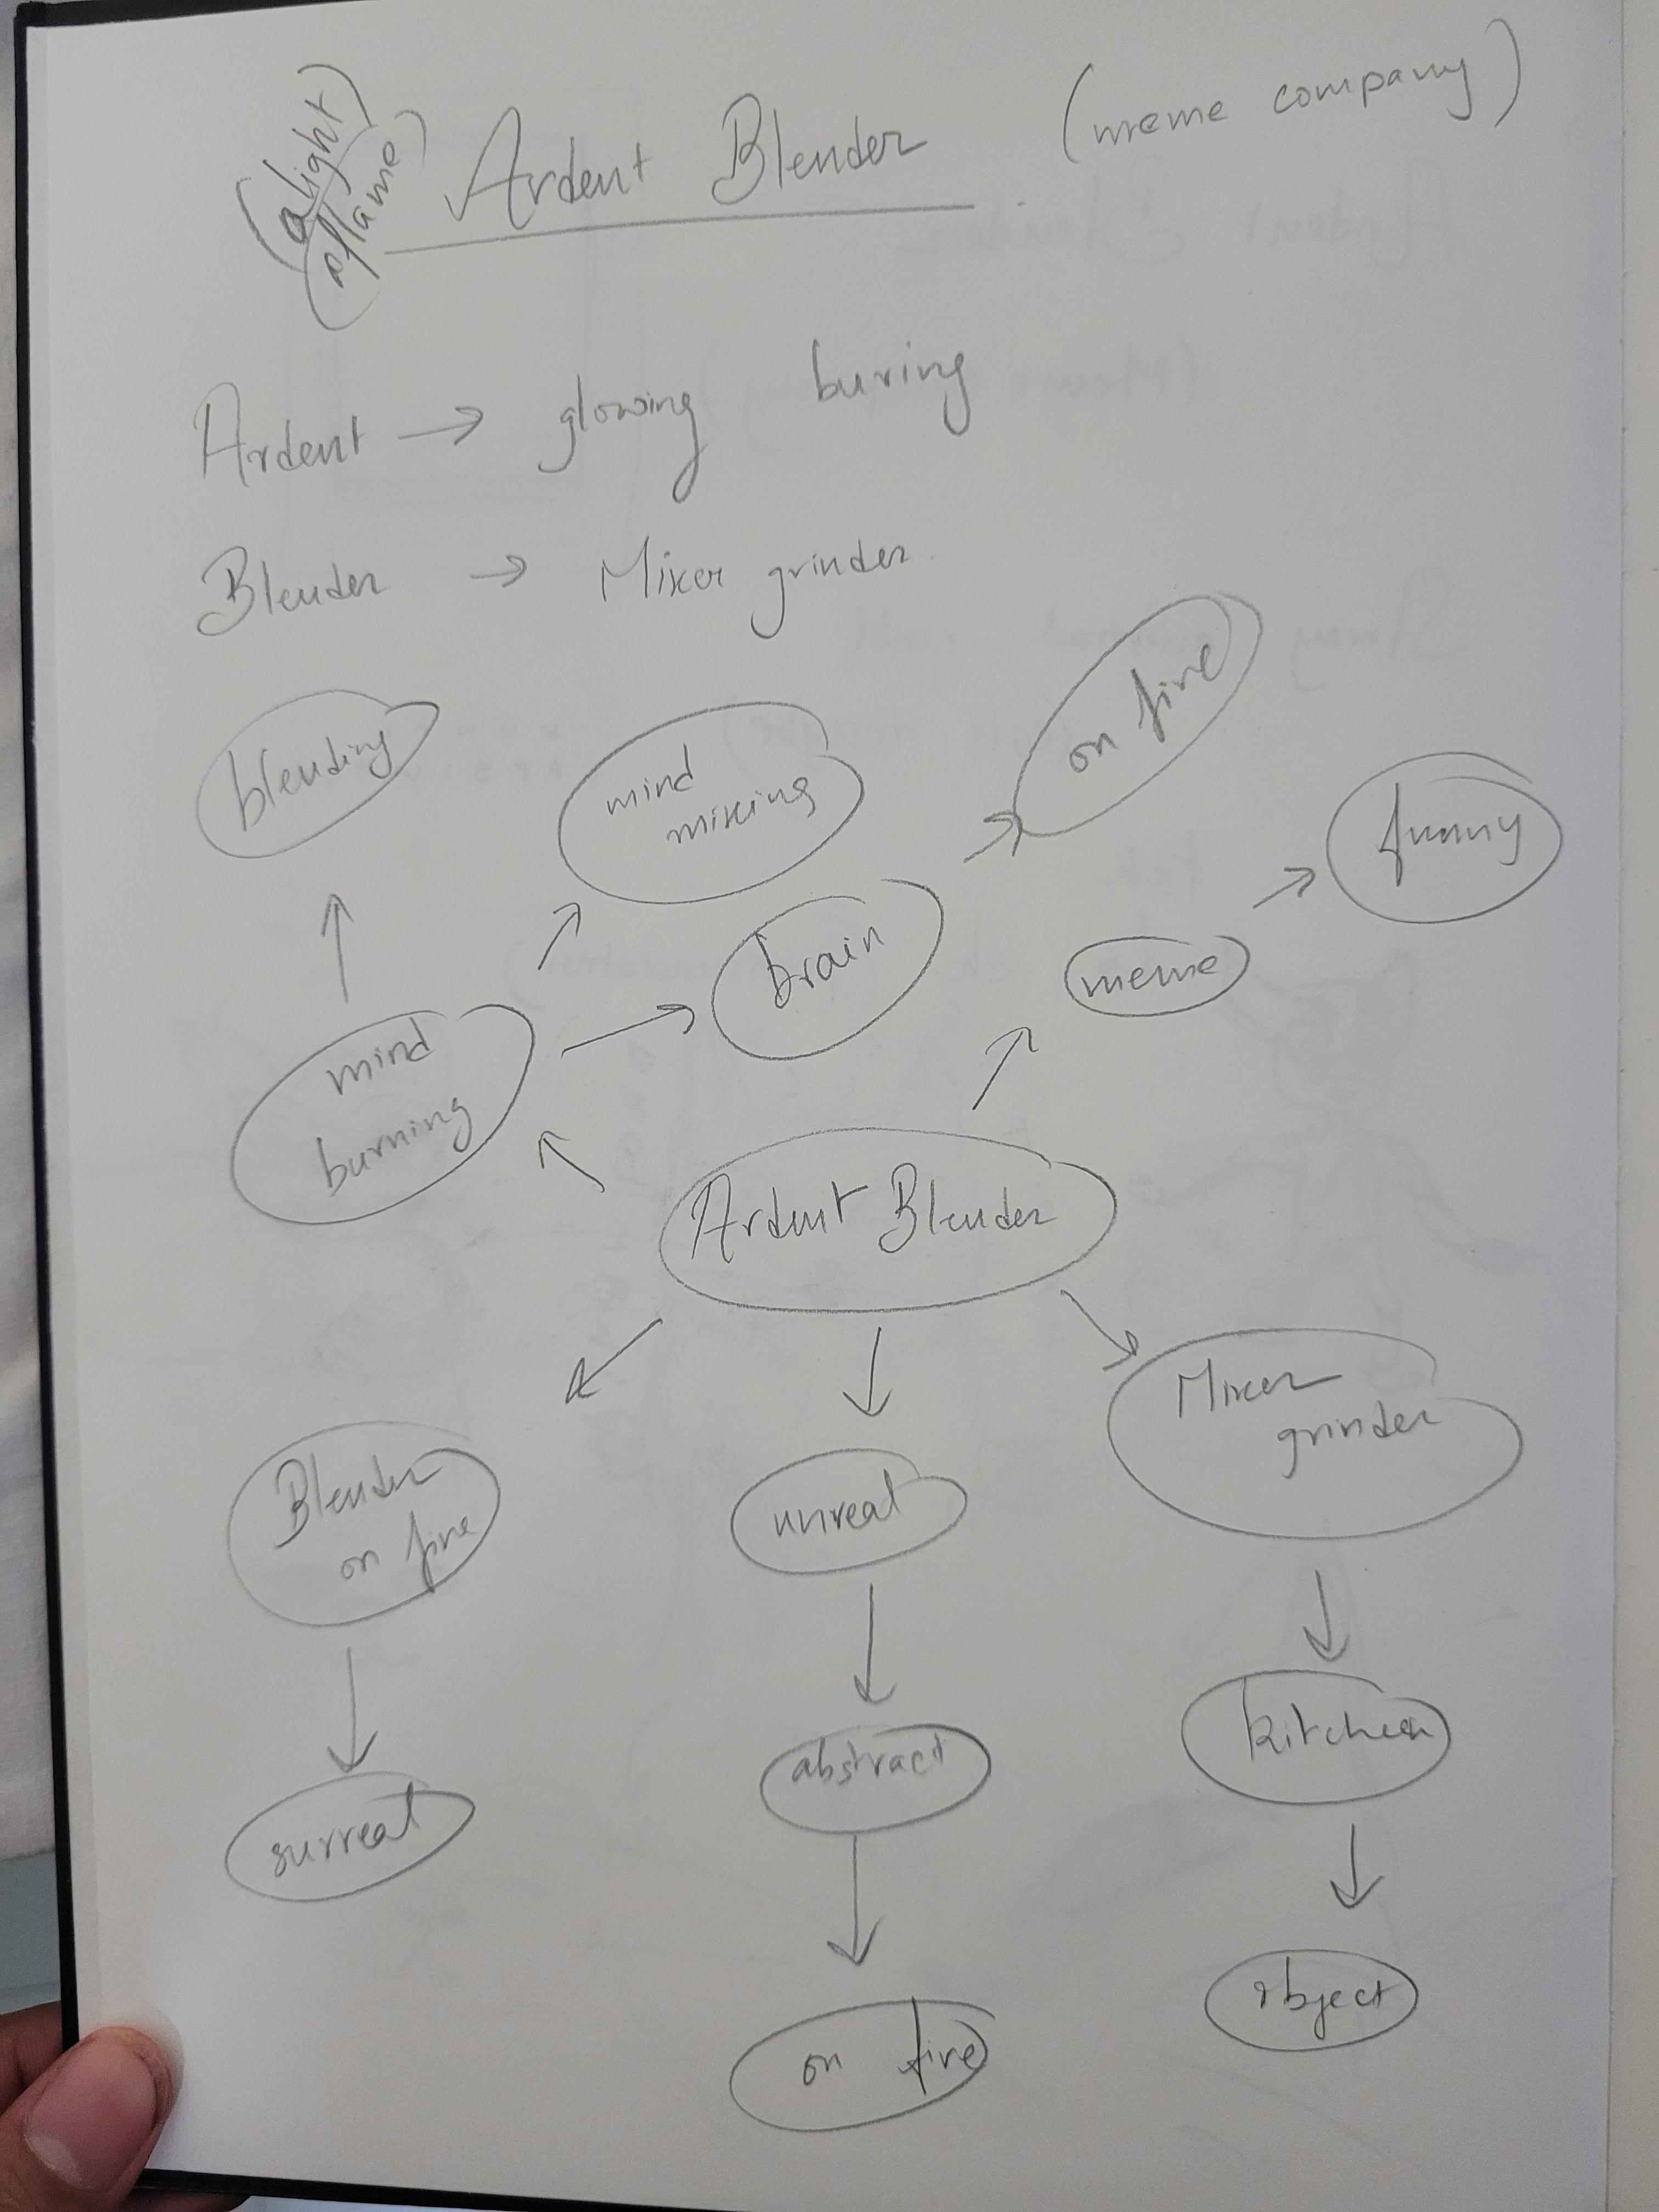 (alight)
(aflame)
Ardent Blender (meme company)
Ardent → glowing buring
Blender → Mixer grinder.
blending
mind
mixing
on fire
funny
brain
meme
mind
burning
Ardent Blender
Blender
on fire
unreal
Mixer
grinder
surreal
abstract
kitchen
on fire
object